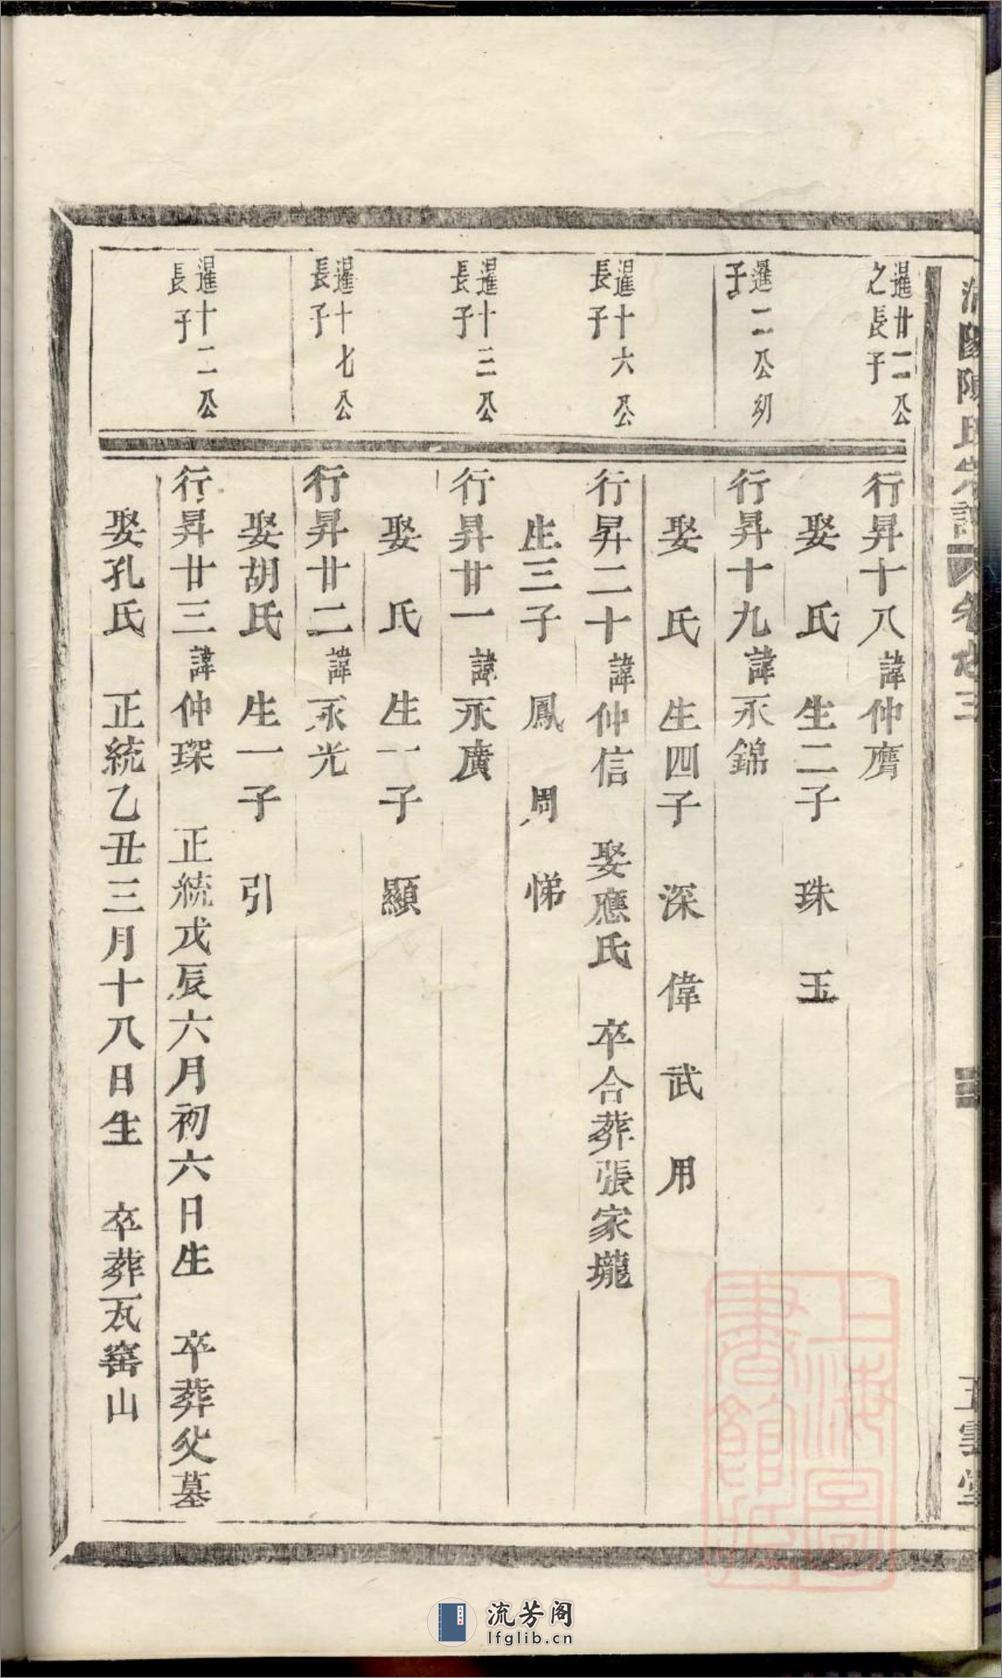 陳氏宗譜 卷之三
五雲堂
暹廿二公
之長子
行昇十八諱仲膺
娶 氏 生二子 珠 玉
暹二公幼
子
行昇十九諱永錦
娶 氏 生四子 深 偉 武 用
暹十六公
長子
行昇二十諱仲信 娶應氏 卒合葬張家壠
生三子 鳳 周 悌
暹十三公
長子
行昇廿一諱永廣
娶 氏 生一子 顯
暹十七公
長子
行昇廿二諱永光
娶胡氏 生一子 引
暹十二公
長子
行昇廿三諱仲琛 正統戊辰六月初六日生 卒葬父墓
娶孔氏 正統乙丑三月十八日生 卒葬瓦窰山
上海圖
書館藏
流芳阁
lfglib.cn